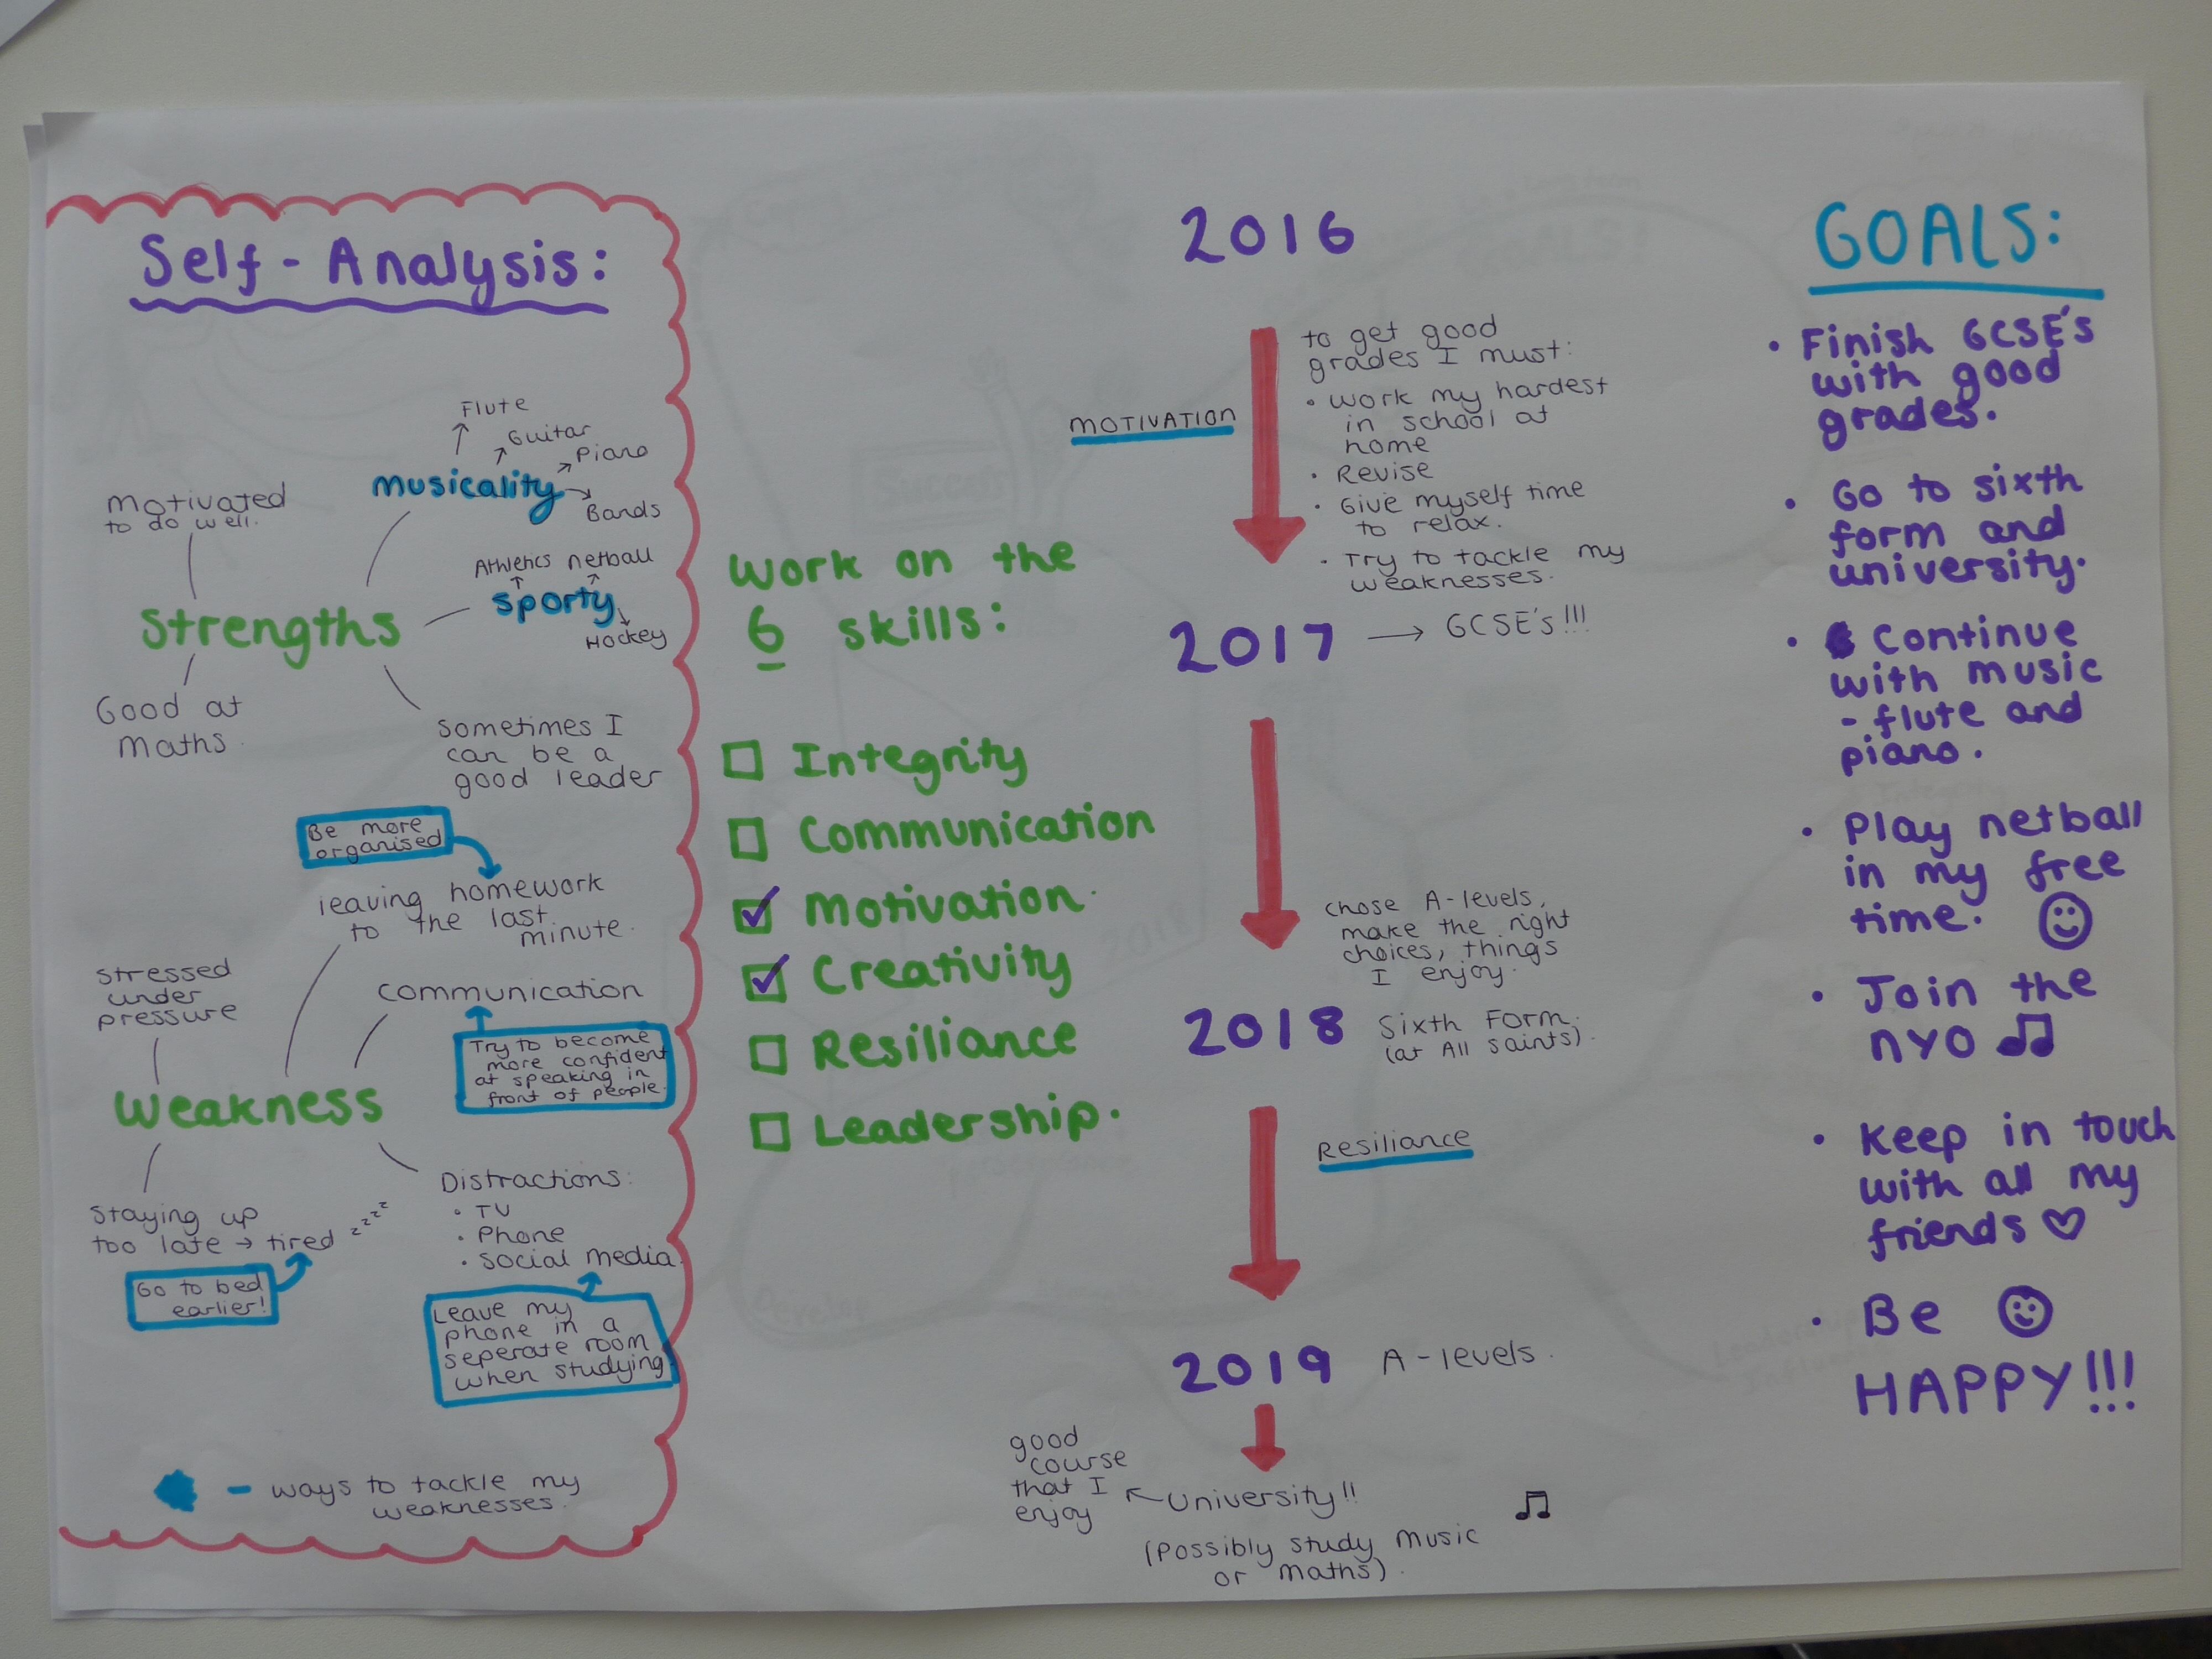 Self-Analysis:
Flute
Guitar
Piano
musicality
Bands
motivated
to do well.
Athletics netball
sporty
Hockey
Strengths
Good at
maths.
sometimes I
can be a
good leader
Be more
organised
leaving homework
to the last
minute.
stressed
under
pressure
communication
Try to become
more confident
at speaking in
front of people.
weakness
Staying up
too late → tired zzzz
Go to bed
earlier!
Distractions:
• TV
• Phone
• social media.
Leave my
phone in a
seperate room
when studying
- ways to tackle my
weaknesses.
work on the
6 skills:
Integrity
Communication
Motivation.
Creativity
Resiliance
Leadership.
2016
MOTIVATION
to get good
grades I must:
• work my hardest
in school at
home
• Revise
• Give myself time
to relax.
• Try to tackle my
weaknesses.
2017 → GCSE's!!!
chose A-levels,
make the right
choices, things
I enjoy.
2018 Sixth Form.
(at All Saints).
Resiliance
2019 A-levels.
good
course
that I
enjoy
University!!
(Possibly study music
or maths).
GOALS:
• Finish GCSE's
with good
grades.
• Go to sixth
form and
university.
• Continue
with music
- flute and
piano.
• Play netball
in my free
time.
• Join the
NYO
• Keep in touch
with all my
friends
• Be
HAPPY!!!